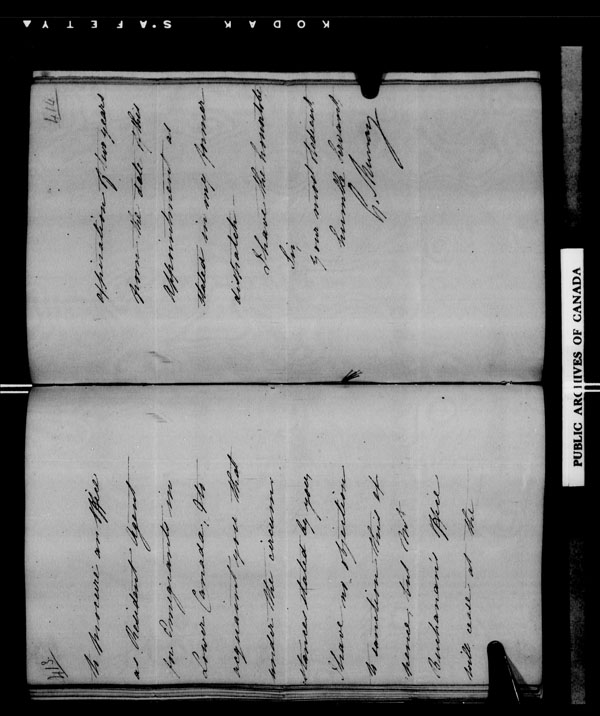 KODAK SAFETY ▲
413
to procure an office
as Resident Agent
for Emigrants in
Lower Canada, I to
acquaint you that
under the circum-
stances stated by you,
I have no objection
to sanction this ex
pence, but Mr
Buchanan's Office
will cease at the
414
expiration of two years
from the date of his
appointment as
stated in my former
dispatch.
I have the honor to be
Sir,
Your most obedient
humble Servant,
G. Murray
PUBLIC ARCHIVES OF CANADA